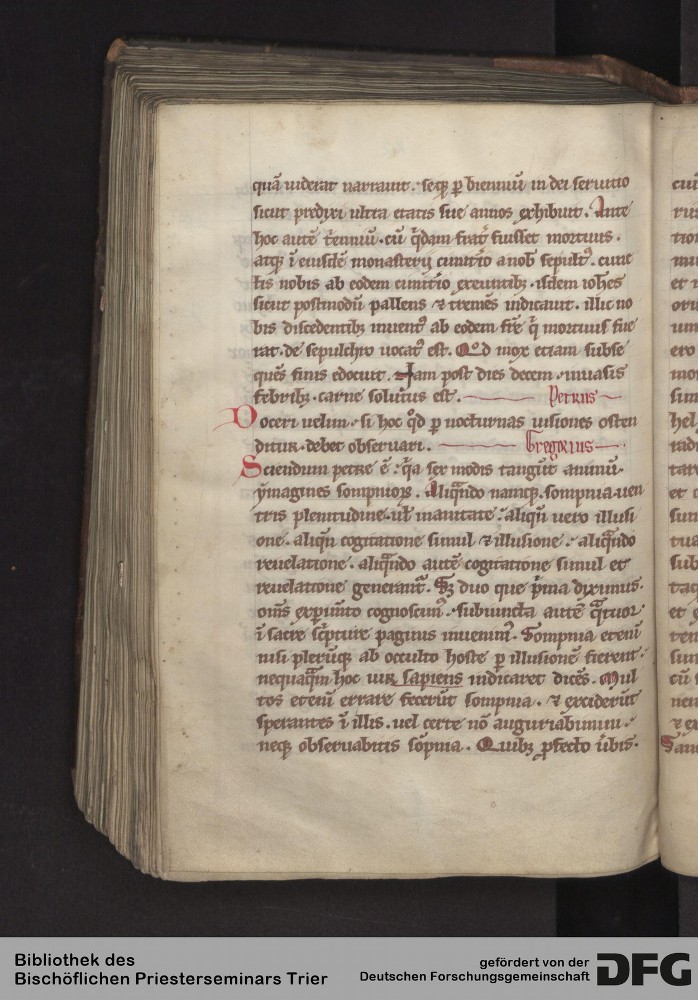 quā uiderat narrauit. seq; p bienniū in dei seruitio
sicut predixi ultra etatis sue annos exhibuit. Ante
hoc autē t'enniū. cū q̄dam frat' fuisset mortuus.
atq; ī eiusdē monasterij cimit'io a nob' sepult'. cunc
tis nobis ab eodem cimit'io exeuntib;. isdem ioh'es
sicut postmodū pallens ⁊ tremēs indicauit. illic no
bis discedentib; inuent' ab eodem fr̄e q̇ mortuus fue
rat. de sepulchro uocat' est. Qd mox etiam subse
quēs finis edocuit. Iam post dies decem. inuasis
febrib;. carne solutus est. Petrus
Doceri uelim. si hoc qd p nocturnas uisiones osten
ditur. debet obseruari. Gregorius
Sciendum petre ē. q̄a sex modis tangūt animū.
ymagines sompniorꝝ. Aliq̄ndo namq; sompnia uen
tris plenitudine. ul' inanitate. aliqn̄ uero illusi
one. aliqn̄ cogitatione simul ⁊ illusione. aliq̄ndo
reuelatione. aliq̄ndo autē cogitatione simul et
reuelatione generant'. Sʒ duo que p̄ma diximus.
om̄s experim̄to cognoscim'. subiuncta autē q̄tuor.
ī sacre sc̄pture paginis inuenim'. Sompnia etenī
nisi plerūq; ab occulto hoste p illusionē fierent.
nequaq̄m hoc uir sapiens indicaret dicēs. Mul
tos etenī errare fecerūt sompnia. ⁊ exciderūt
sperantes ī illis. uel certe nō auguriabimini.
neq; obseruabitis sōpnia. Quib; p̱fecto ūbis.
Bibliothek des
Bischöflichen Priesterseminars Trier
gefördert von der
Deutschen Forschungsgemeinschaft
DFG